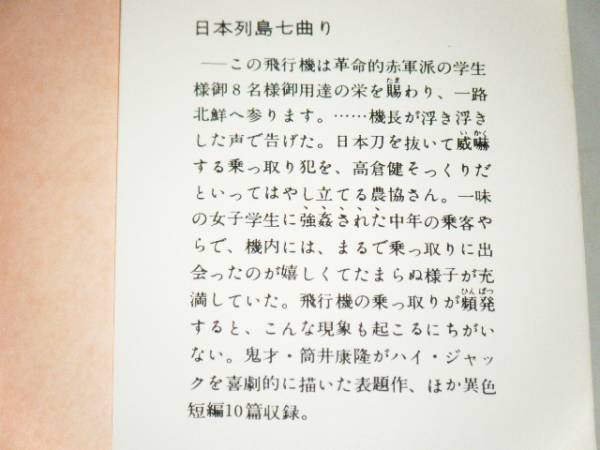 日本列島七曲り
──この飛行機は革命的赤軍派の学生
様御8名様御用達の栄を賜わり、一路
北鮮へ参ります。……機長が浮き浮き
した声で告げた。日本刀を抜いて威嚇
する乗っ取り犯を、高倉健そっくりだ
といってはやし立てる農協さん。一味
の女子学生に強姦された中年の乗客や
らで、機内には、まるで乗っ取りに出
会ったのが嬉しくてたまらぬ様子が充
満していた。飛行機の乗っ取りが頻発
すると、こんな現象も起こるにちがい
ない。鬼才・筒井康隆がハイ・ジャッ
クを喜劇的に描いた表題作、ほか異色
短編10篇収録。